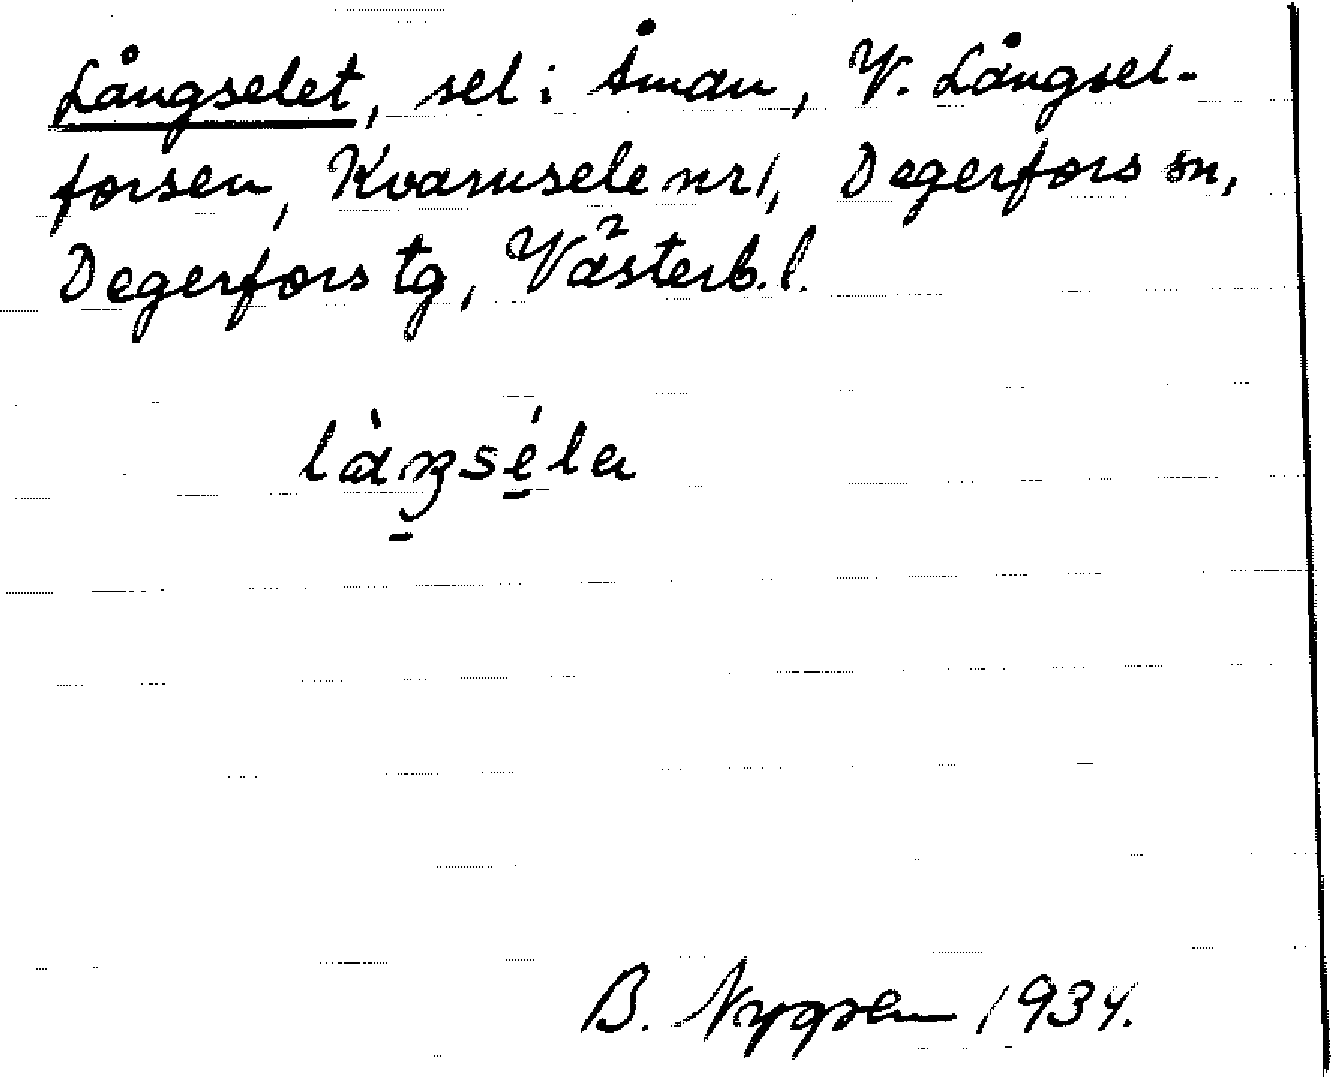 Långselet, sel i Åman, V. Långsel-
forsen, Kvarnsele nr 1, Degerfors sn,
Degerfors tg, Västerb. l.
B. Nygren 1934.